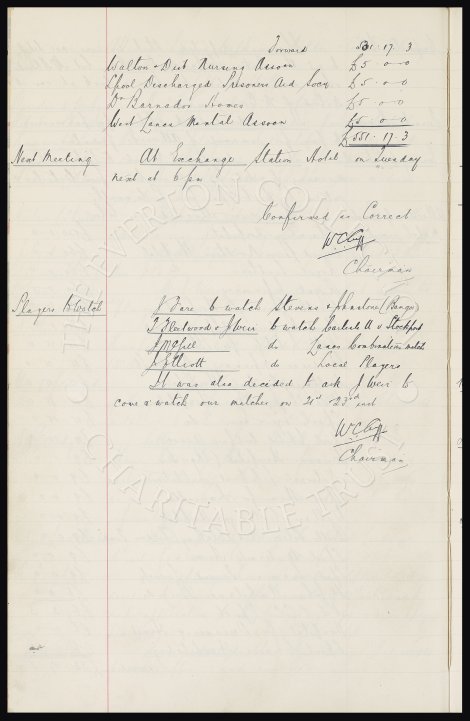 Forward 531 . 17 . 3
Walton & Dist Nursing Assocn £5 . 0 . 0
L'pool Discharged Prisoners Aid Socy £5 . 0 . 0
Dr Barnados Homes £5 . 0 . 0
West Lancs Mental Assocn £5 . 0 . 0
£551 . 17 . 3
Next Meeting At Exchange Station Hotel on Tuesday
next at 6 pm
Confirmed as Correct
W.C. Cuff
Chairman
Players to watch J Dare to watch Stevens & Johnstone (Bangor)
T Fleetwood & J Weir to watch Carlisle U v Stockport
do Lancs Combination match
J Elliott do Local Players
It was also decided to ask J Weir to
come & watch our matches on 21st & 23rd inst
W.C. Cuff
Chairman
THE EVERTON CO
CHARITABLE TRUST